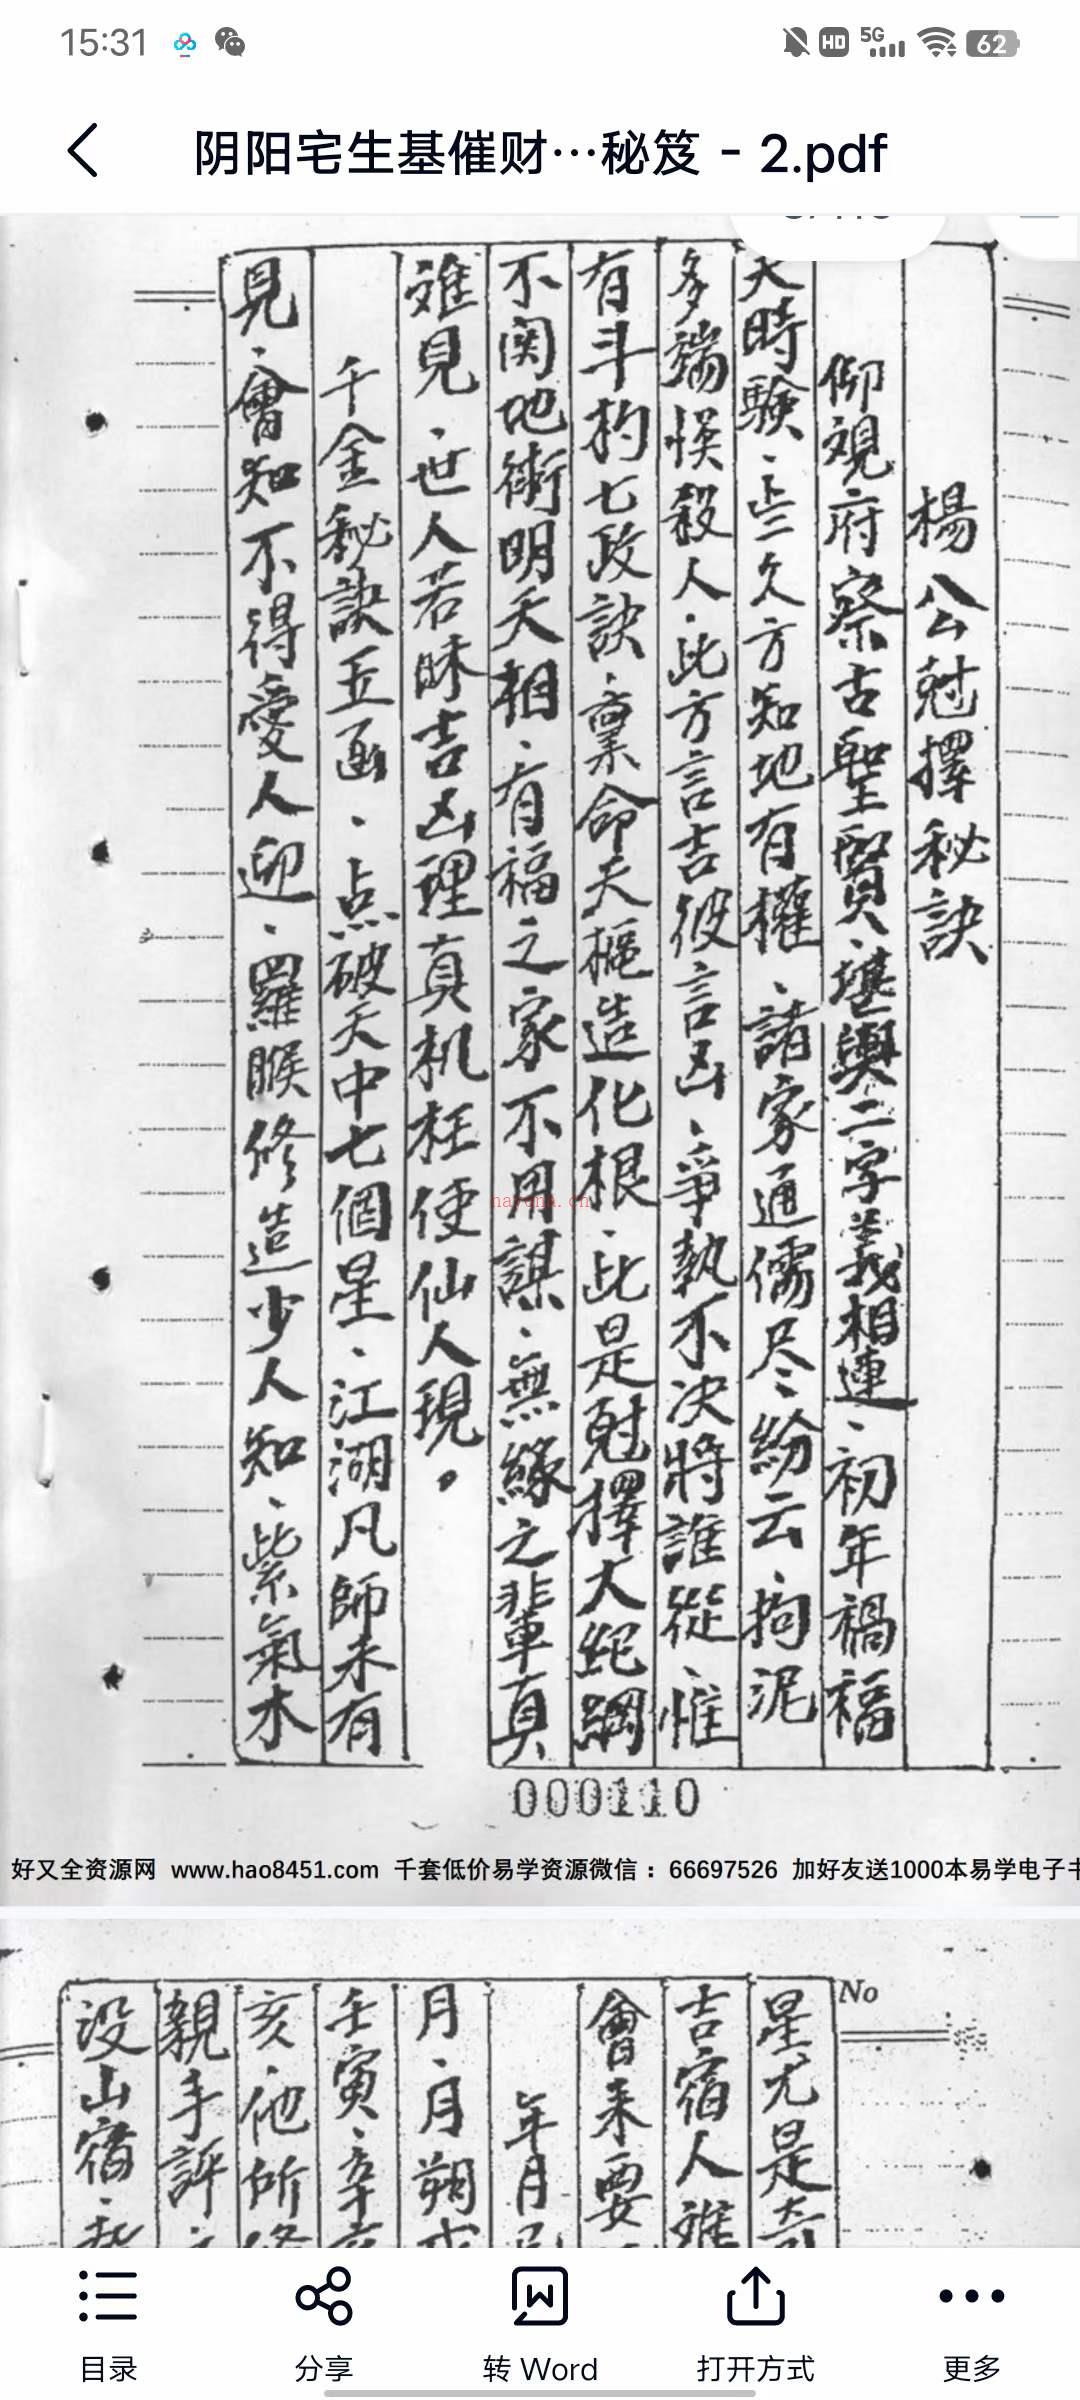 15:31
HD 5G 62
阴阳宅生基催财…秘笈 - 2.pdf
楊公尅擇秘訣
仰观府察古聖賢、堪輿二字義相連、初年禍福
天時験、些久方知地有權、諸家通儒尽紛云、拘泥
多端悞殺人、此方言吉彼言凶、爭執不决將誰從、惟
有斗杓七政訣、稟命天樞造化根、此是尅擇大綱
不関地術明天相、有福之家不用謀、無緣之輩真
难見、世人若昧吉凶理真机枉使仙人現。
千金秘訣五函、点破天中七個星、江湖凡師未有
見、會知不得愛人迎、羅睺修造少人知、紫氣木
nayona.cn
000110
好又全资源网 www.hao8451.com 千套低价易学资源微信：66697526 加好友送1000本易学电子书
No
星尤是
吉宿人难
會来要
年月
月、月朔
壬寅、辛亥
亥、他所修
親手評、
设山宿、
目录
分享
转 Word
打开方式
更多